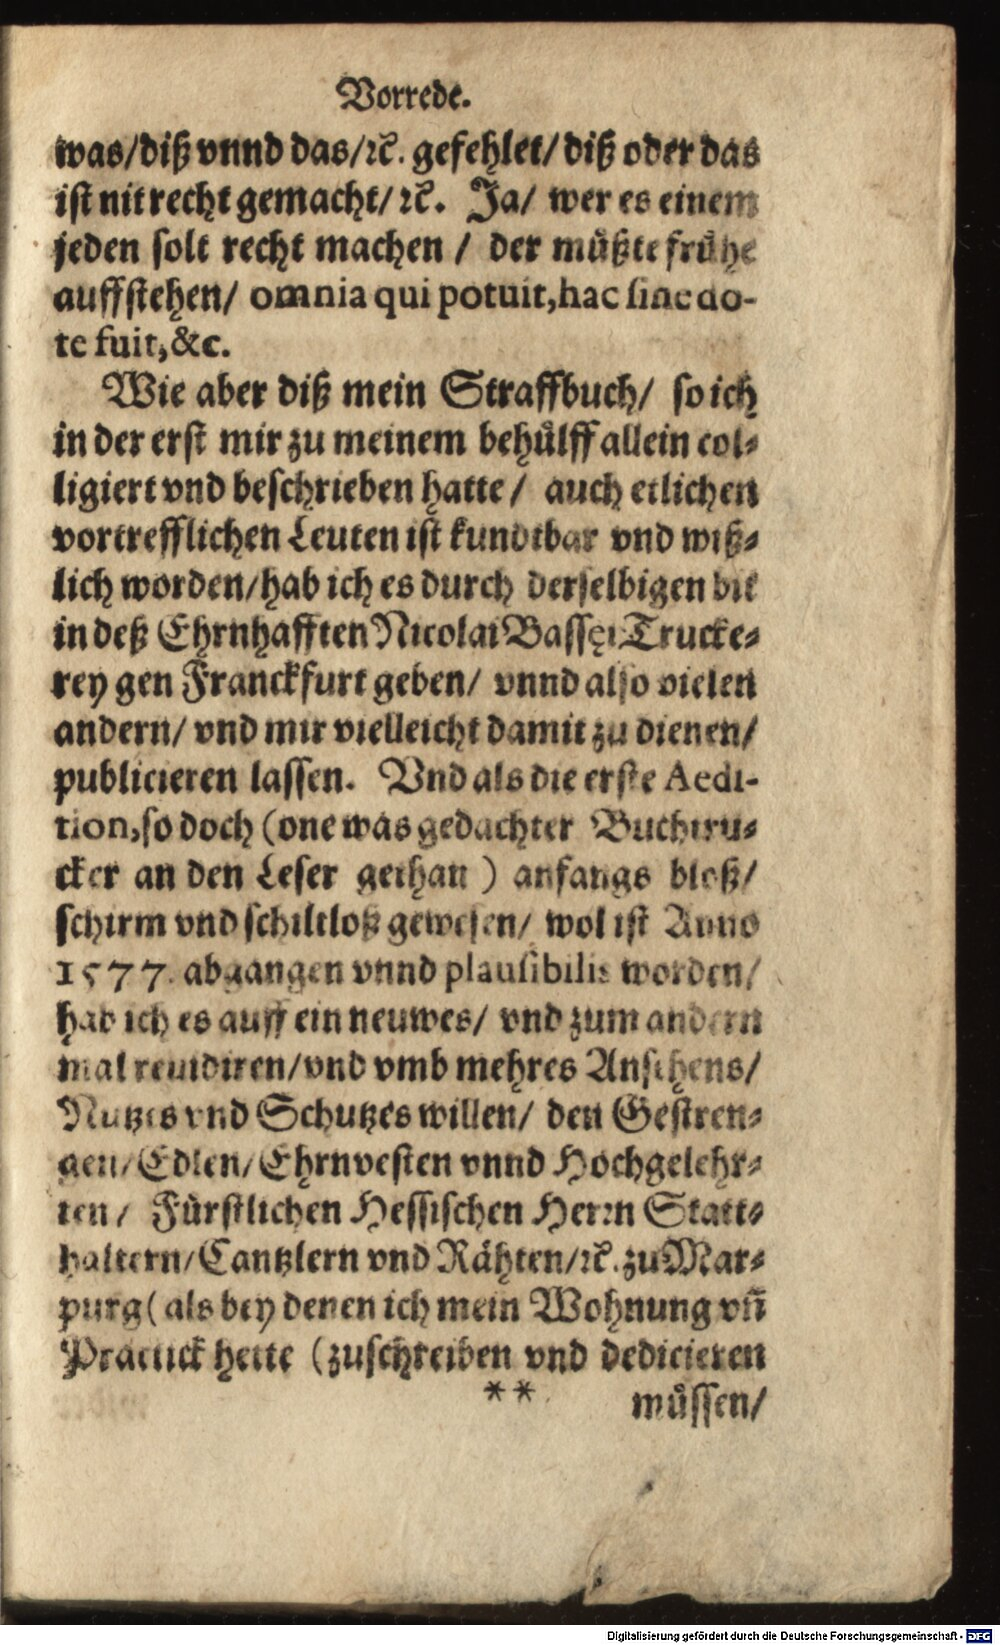 Vorrede.
was/diß vnnd das/ꝛc. gefehlet/diß oder das
ist nit recht gemacht/ꝛc. Ja/ wer es einem
jeden solt recht machen / der muͤßte fruͤhe
auffstehen/ omnia qui potuit, hac sine do-
te fuit, &c.
Wie aber diß mein Straffbuch/ so ich
in der erst mir zu meinem behuͤlff allein col-
ligiert vnd beschrieben hatte / auch etlichen
vortrefflichen Leuten ist kundtbar vnd wiß-
lich worden/hab ich es durch derselbigen bit
in deß Ehrnhafften Nicolai Bassęi Trucke-
rey gen Franckfurt geben/ vnnd also vielen
andern/ vnd mir vielleicht damit zu dienen/
publicieren lassen. Vnd als die erste Aedi-
tion, so doch (one was gedachter Buchtru-
cker an den Leser gethan ) anfangs bloß/
schirm vnd schiltloß gewesen/ wol ist Anno
1577. abgangen vnnd plausibilis worden/
hab ich es auff ein neuwes/ vnd zum andern
mal reuidiren/vnd vmb mehres Ansehens/
Nutzes vnd Schutzes willen/ den Gestren-
gen/Edlen/Ehrnvesten vnnd Hochgelehr-
ten / Fürstlichen Hessischen Herrn Statt-
haltern/Cantzlern vnd Rähten/ꝛc. zu Mar-
purg ( als bey denen ich mein Wohnung vñ
Practick hette (zuschreiben vnd dedicieren
** müssen/
Digitalisierung gefördert durch die Deutsche Forschungsgemeinschaft - DFG